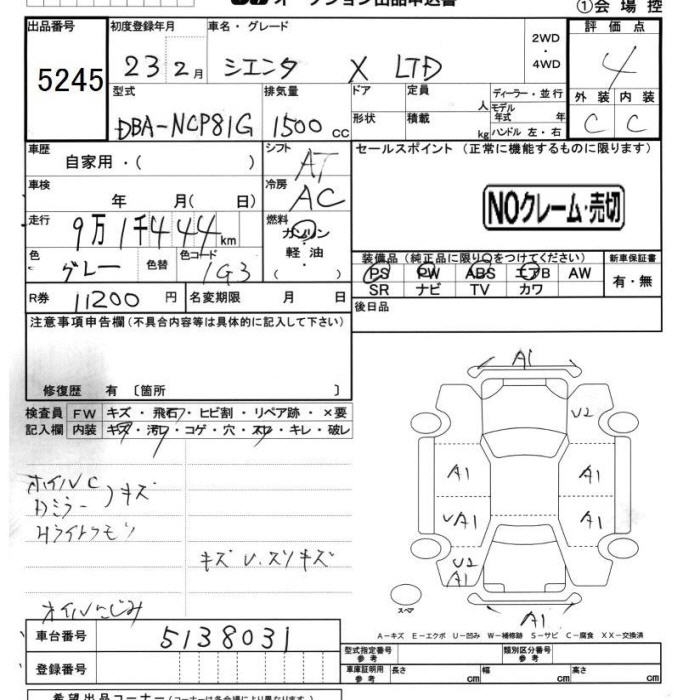 オークション出品申込書
①会場控
出品番号 初度登録年月 車名・グレード 2WD・4WD 評価点
5245 23 2月 シエンタ X LTD 4
型式 排気量 ドア 定員 人 ディーラー・並行 外装 内装
モデル年式 年
DBA-NCP81G 1500cc 形状 積載 kg ハンドル 左・右 C C
車歴 自家用・( ) シフト AT セールスポイント (正常に機能するものに限ります)
車検 年 月( 日) 冷房 AC
NOクレーム・売切
走行 9万1千444km 燃料 ガソリン・軽油・( )
色 グレー 色替 色コード 1G3
装備品(純正品に限り○をつけてください) 新車保証書
PS PW ABS エアB AW 有・無
SR ナビ TV カワ
R券 11200円 名変期限 月 日
後日品
注意事項申告欄(不具合内容等は具体的に記入して下さい)
修復歴 有 〔箇所 〕
検査員 FW キズ・飛石・ヒビ割・リペア跡・×要
記入欄 内装 キズ・汚レ・コゲ・穴・スレ・キレ・破レ
ホイルC
Dミラー キズ
キズ U.スリキズ
オイルにじみ
A1
U2
A1 A1
UA1 A1
U2
A1
スペア
A1
A-キズ E-エクボ U-凹み W-補修跡 S-サビ C-腐食 XX-交換済
車台番号 5138031
型式指定番号 参考 類別区分番号 参考
登録番号
車庫証明用 参考 長さ cm 幅 cm 高さ cm
希望出品コーナー(コーナーは各会場により異なります。)